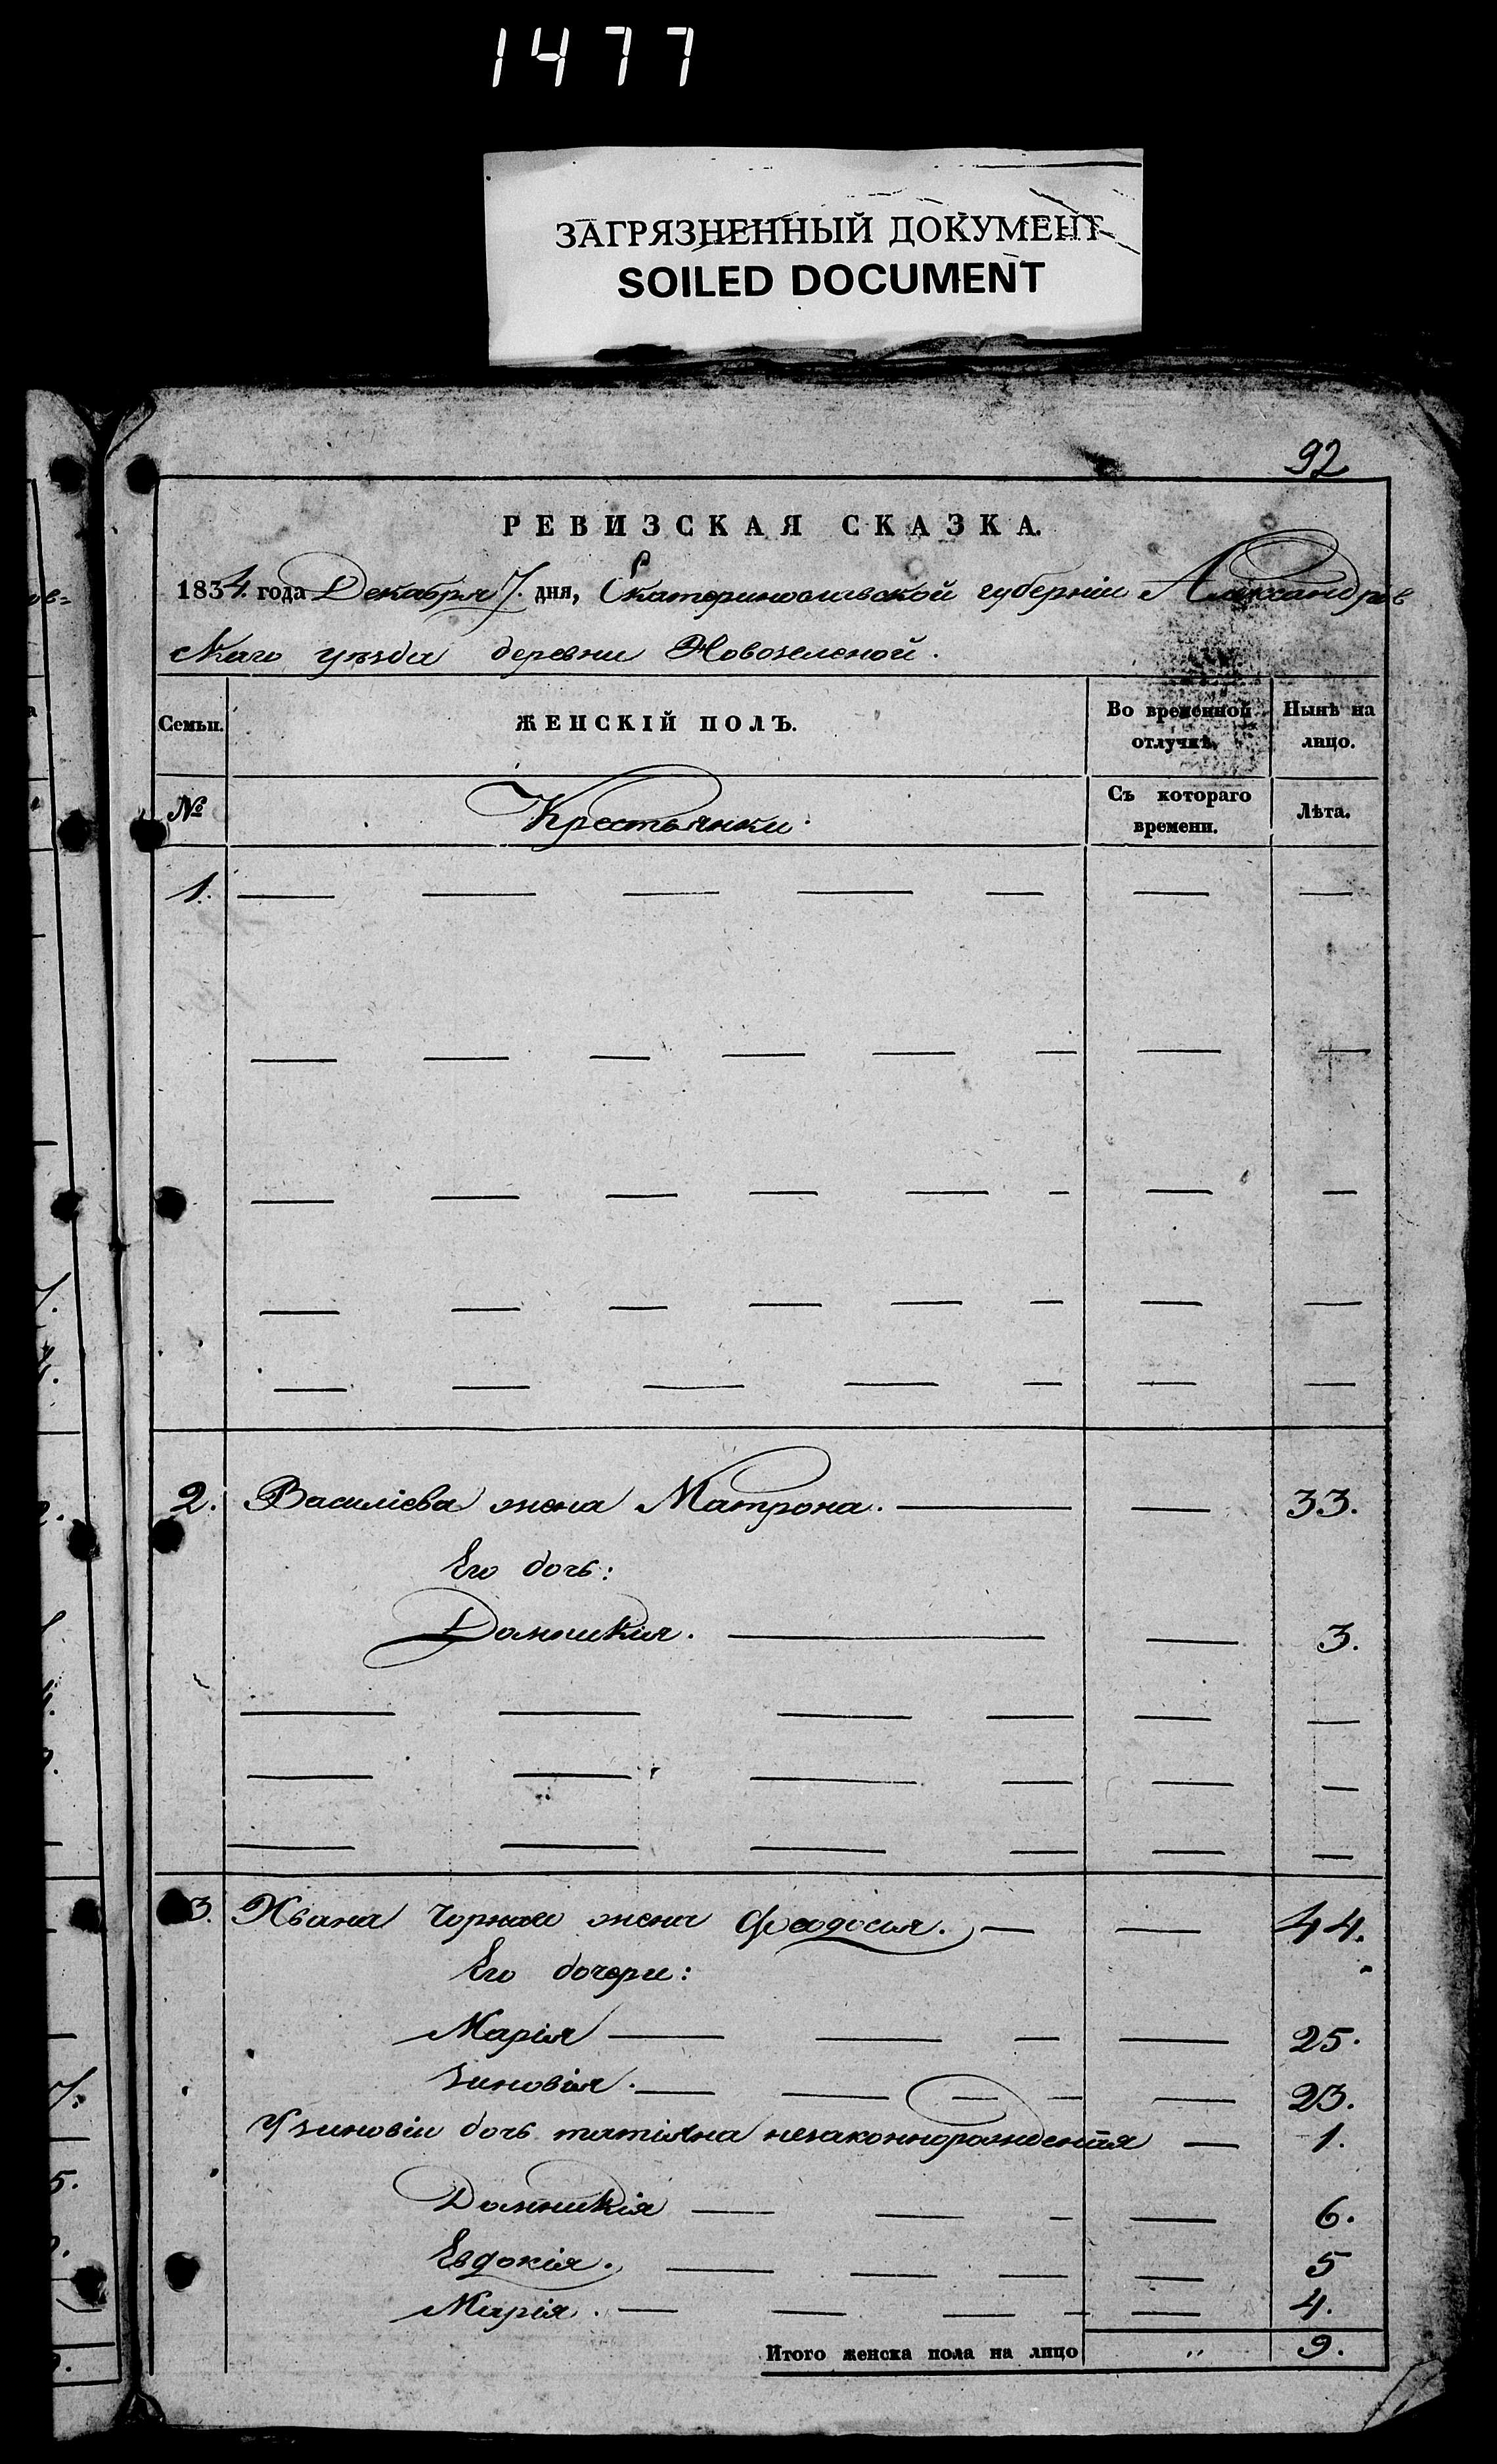 1477
ЗАГРЯЗНЕННЫЙ ДОКУМЕНТ
SOILED DOCUMENT
92
РЕВИЗСКАЯ СКАЗКА.
1834. года Декабря 7. дня, Екатеринославской губерніи Александров
скаго уѣзда деревни Новозеленой.
Семьи. ЖЕНСКІЙ ПОЛЪ. Во временной отлучкѣ. Нынѣ на лицо.
№ Крестьянки. Съ котораго времени. Лѣта.
1.
2. Василіева жена Матрона. 33.
Его дочь:
Домникия. 3.
3. Ивана Чорнаго жена Феодосия. 44.
Его дочери:
Марія 25.
Зиновія. 23.
У Зиновіи дочь татіяна незаконнорожденная 1.
Домникія 6.
Евдокія. 5
Марія. 4.
Итого женска пола на лицо „ 9.